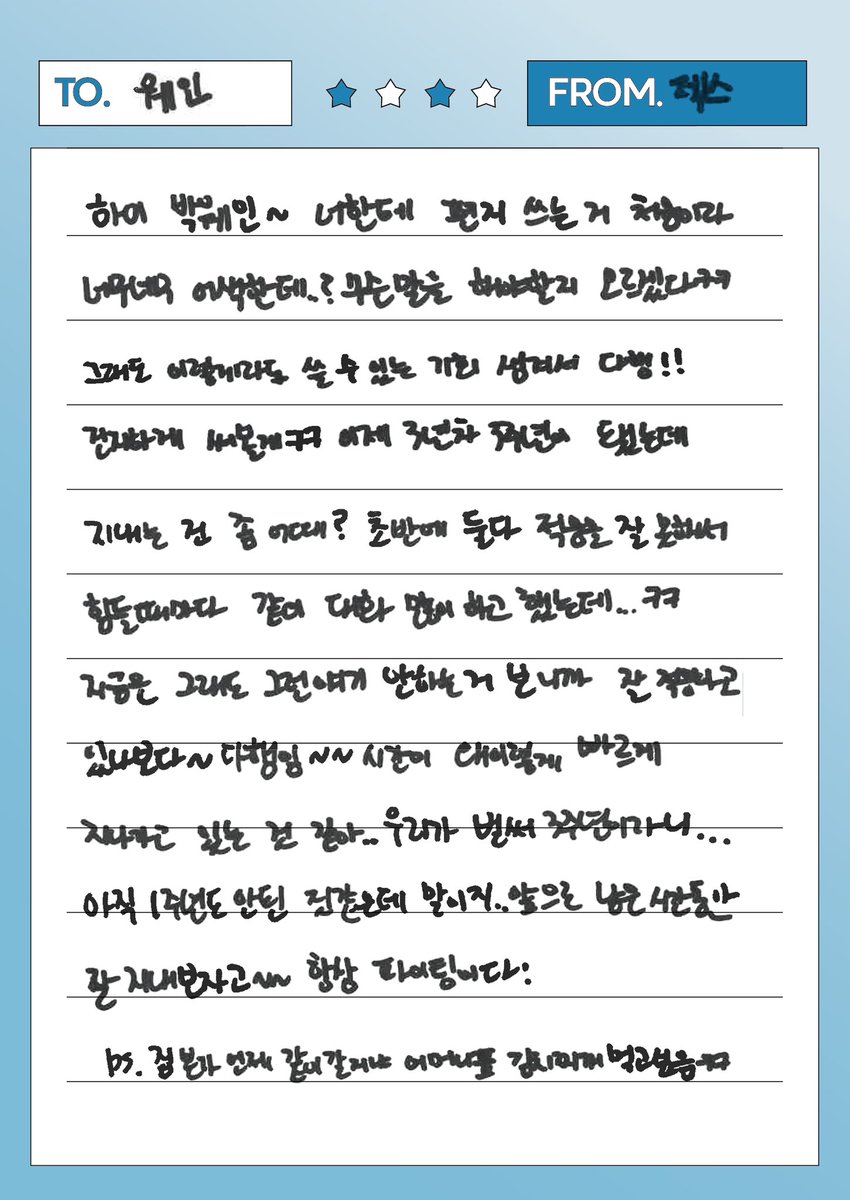 TO. 웨인
FROM. 테스
하이 박웨인~ 너한테 편지 쓰는 거 처음이라
너무너무 어색한데..? 무슨말을 해야할지 모르겠다ㅋㅋ
그래도 이렇게라도 쓸 수 있는 기회 생겨서 다행!!
진지하게 써볼게ㅋㅋ 이제 3년차 3주년이 됐는데
지내는 건 좀 어때? 초반에 둘다 적응을 잘 못해서
힘들때마다 같이 대화 많이 하고 했는데... ㅋㅋ
지금은 그래도 그런얘기 안하는거 보니까 잘 적응하고
있나보다~ 다행임~~ 시간이 왜이렇게 빠르게
지나가고 있는 것 같아.. 우리가 벌써 3주년이라니...
아직 1주년도 안된 것같은데 말이지.. 앞으로 남은 시간동안
잘 지내보자고~~ 항상 파이팅이다!
ps. 본가 언제 같이갈거냐 어머니표 김치찌개 먹고싶음ㅋㅋ